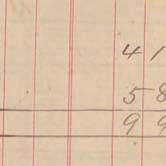 4 1
5 8
9 9